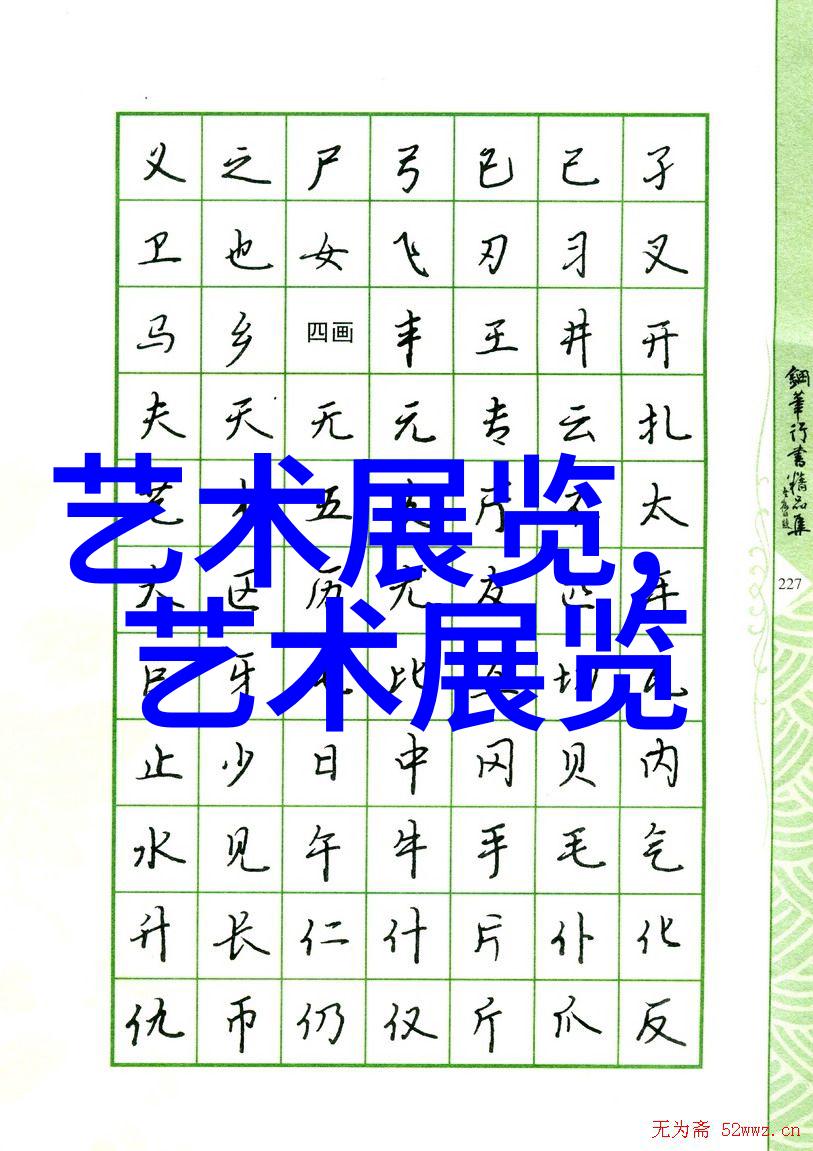 义 之 尸 弓 已 己 子
卫 也 女 飞 刃 习 叉
马 乡 四画 丰 王 井 开
夫 天 无 元 专 云 扎
艺术展览,
艺 五 厅 太
区 历 尤 友 匹 车
艺术展览
牙 比 切
止 少 日 中 冈 贝 内
水 见 午 牛 手 毛 气
升 长 仁 什 片 仆 化
仇 币 仍 仅 斤 爪 反
鋼筆行書精品集
227
无为斋 52wwz.cn